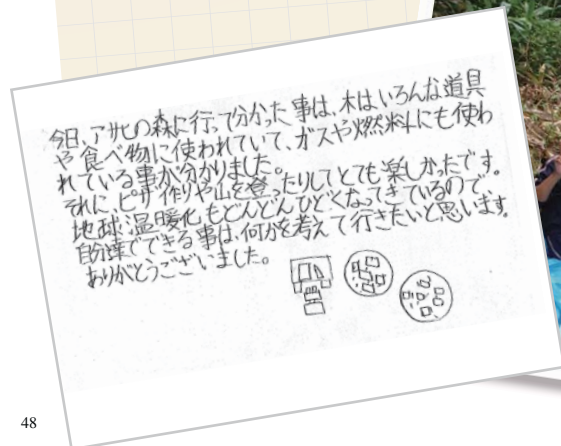 今日、アサヒの森に行って分かった事は、木はいろんな道具
や食べ物に使われていて、ガスや燃料にも使わ
れている事が分かりました。
それに、ピザ作りや山を登ったりしてとても楽しかったです。
地球温暖化もどんどんひどくなってきているので、
自分達でできる事は、何かを考えて行きたいと思います。
ありがとうございました。
48